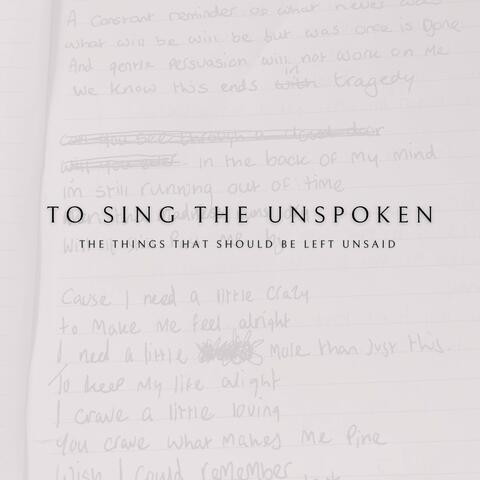 A constant reminder of what never was
what will be will be but was once is gone
And gentle persuasion will not work on me
we know this ends with in tragedy
can you see through a closed door
will you ever In the back of my mind
i'm still running out of time
TO SING THE UNSPOKEN
THE THINGS THAT SHOULD BE LEFT UNSAID
Cause I need a little crazy
to make me feel alright
I need a little more than just this.
To keep my life alight
I crave a little loving
You crave what makes me pine
Wish I could remember